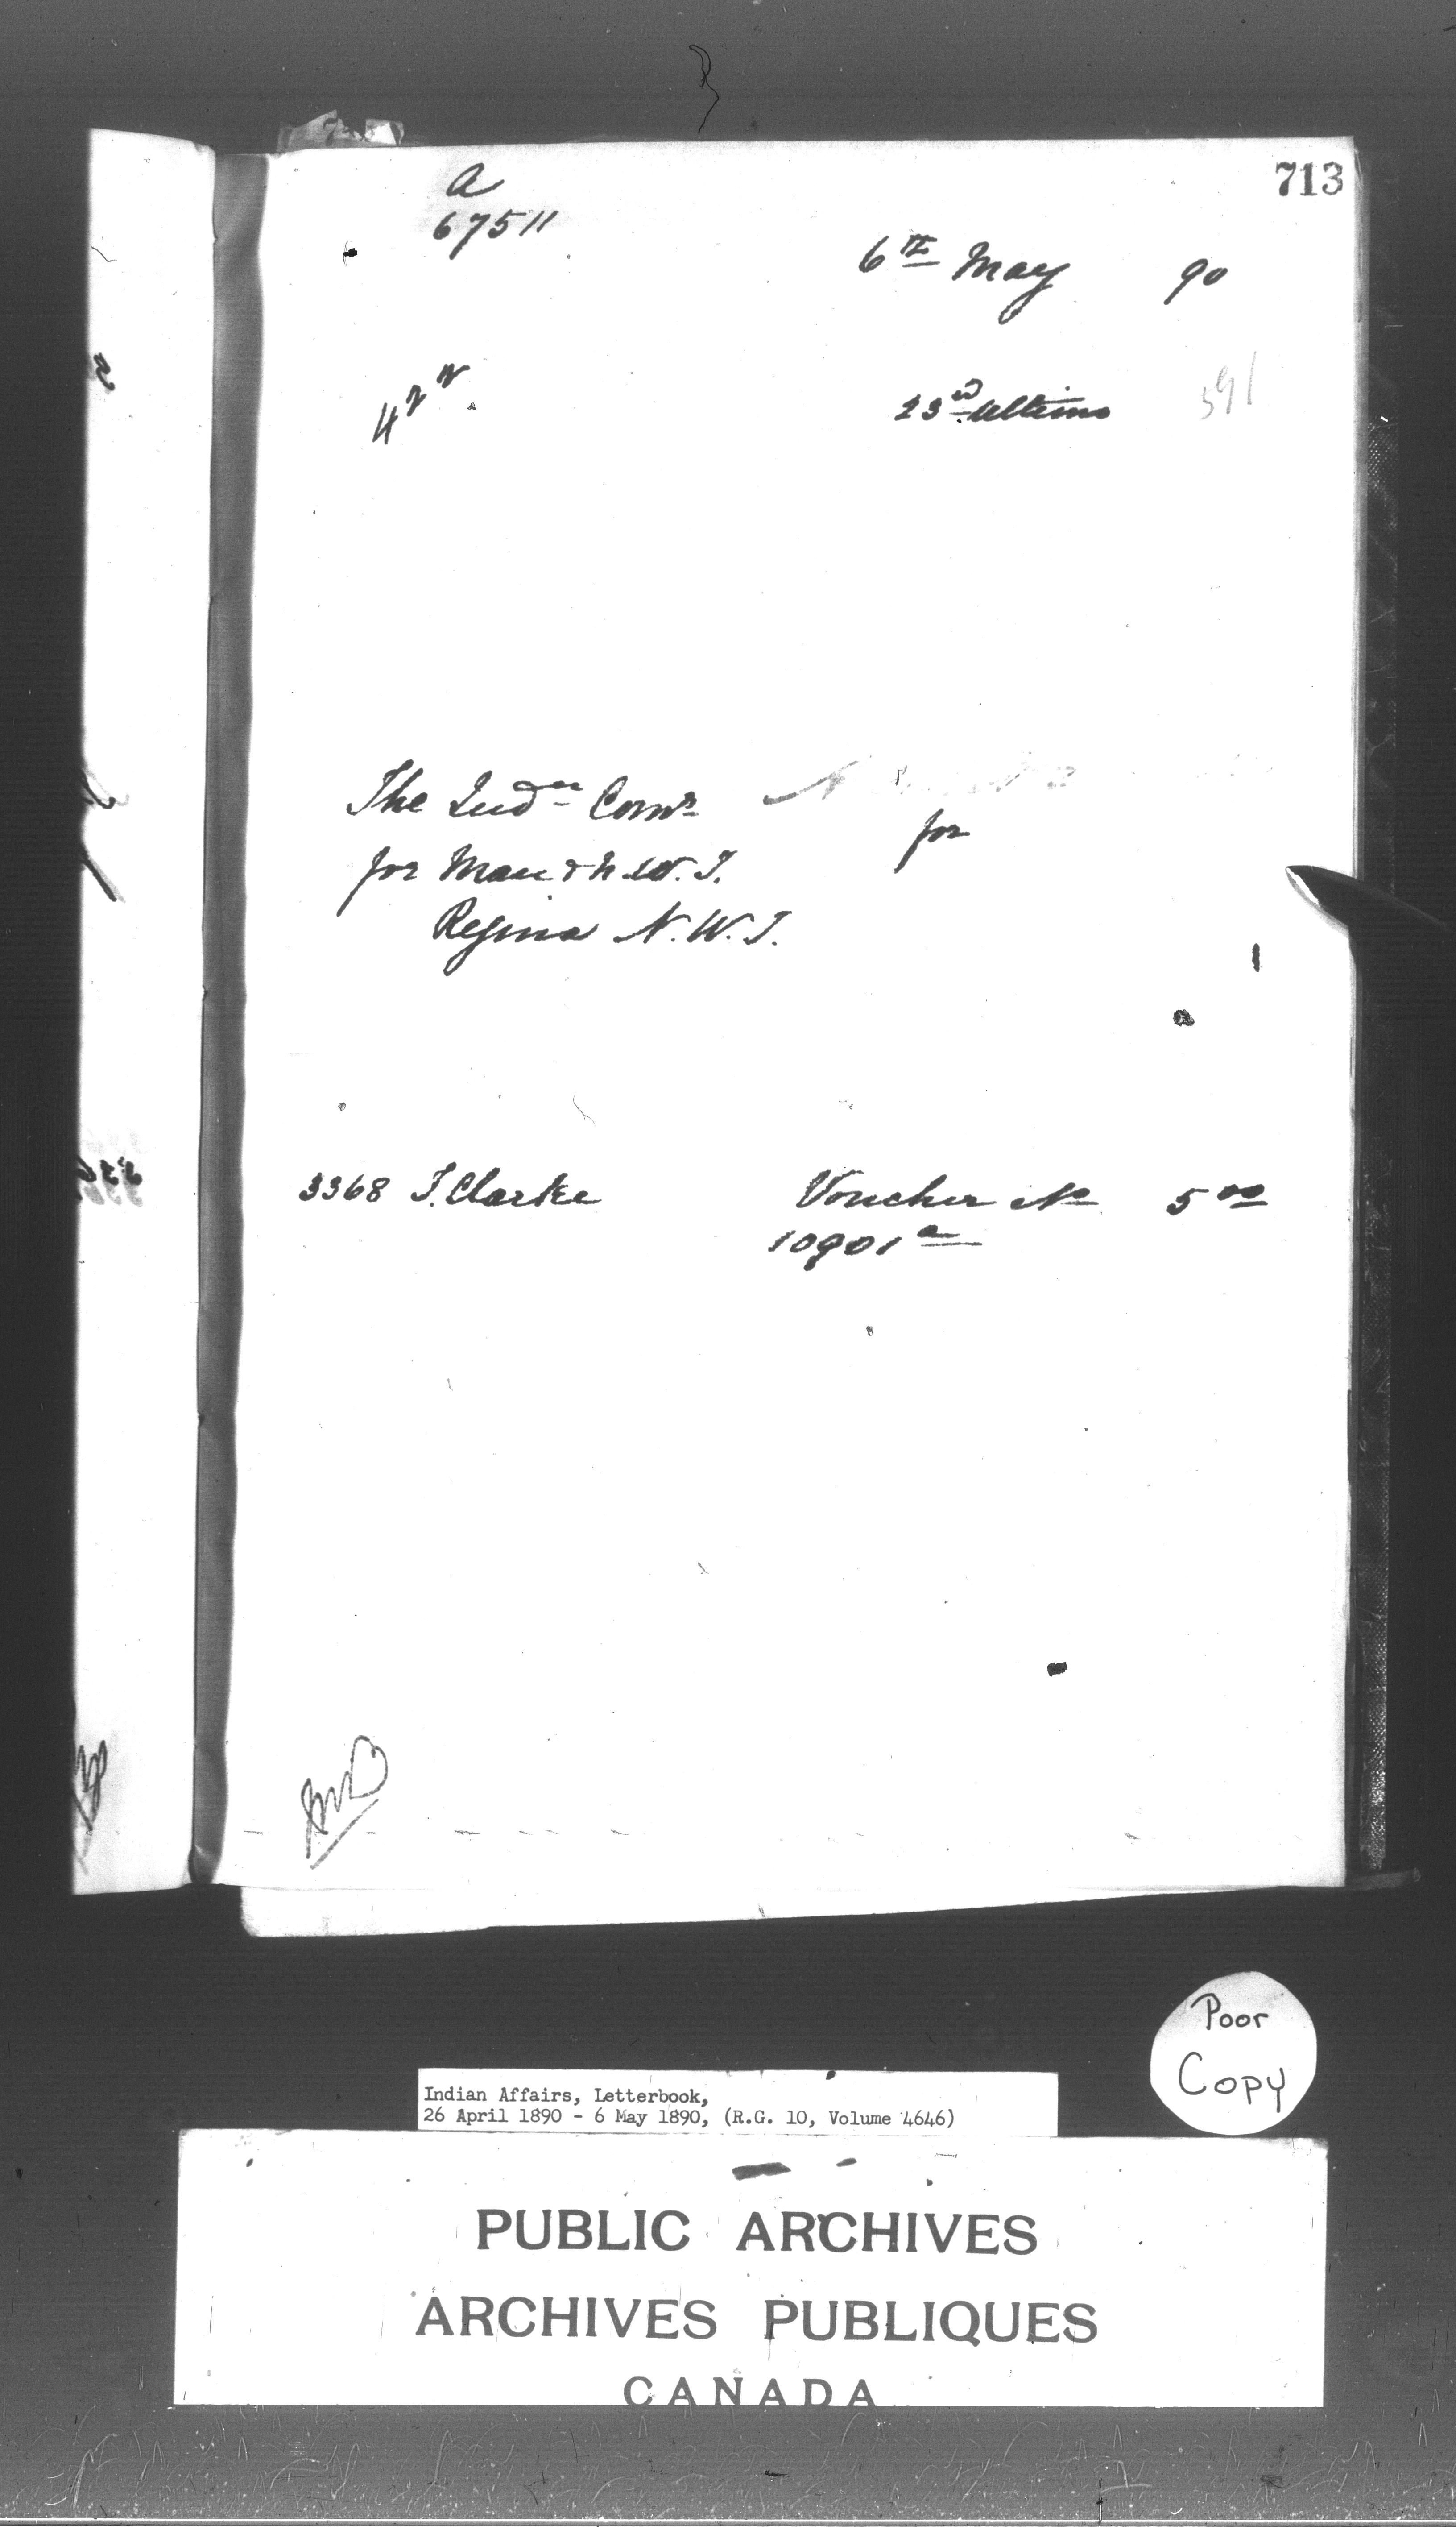 713
a
67511
6th May 90
23rd Ultimo 591
The Indn Comr
for
for Man & N.W.T.
Regina N.W.T.
3368 T. Clarke Voucher No 5 00
10901 a
Poor
Copy
Indian Affairs, Letterbook,
26 April 1890 - 6 May 1890, (R.G. 10, Volume 4646)
PUBLIC ARCHIVES
ARCHIVES PUBLIQUES
CANADA